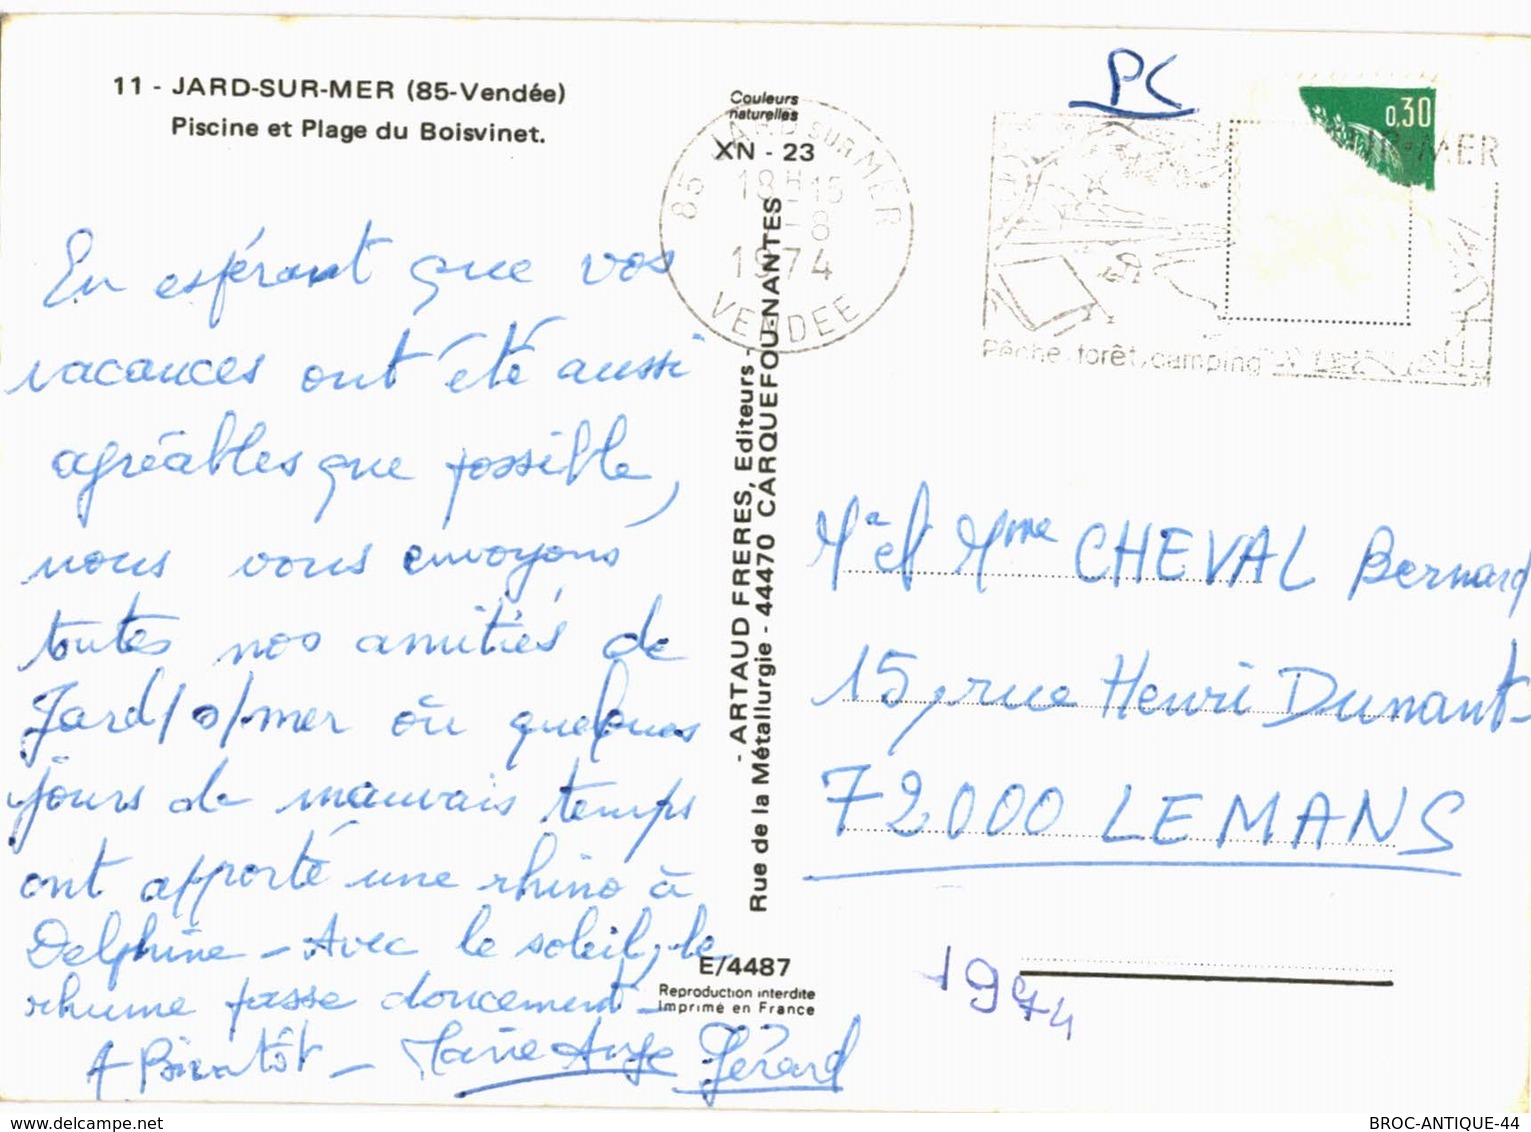 11 - JARD-SUR-MER (85-Vendée)
Piscine et Plage du Boisvinet.
Couleurs
naturelles
XN - 23
85 JARD SUR MER
18H15
-8
1974
VENDEE
PC
0,30
SUR-MER
Pêche, forêt, camping
En espérant que vos
vacances ont été aussi
agréables que possible,
nous vous envoyons
toutes nos amitiés de
Jard/s/mer où quelques
jours de mauvais temps
ont apporté une rhino à
Delphine - Avec le soleil, le
rhume passe doucement -
A Bientôt - Marie Ange Gérard
- ARTAUD FRERES, Editeurs -
Rue de la Métallurgie - 44470 CARQUEFOU-NANTES
E/4487
Reproduction interdite
Imprimé en France
et Mme CHEVAL Bernard
15, rue Henri Dunant
72000 LE MANS
1974
BROC-ANTIQUE-44